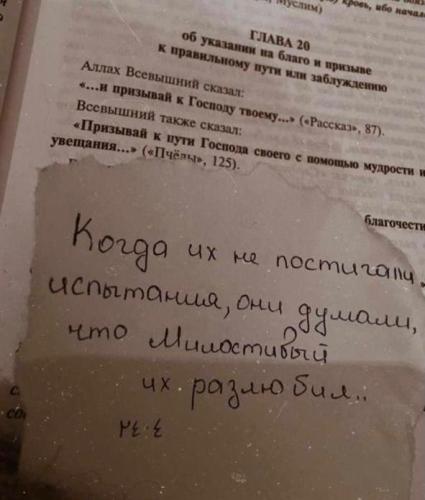 Муслим)
кровь, ибо
ГЛАВА 20
об указании на благо и призыве
к правильному пути или заблуждению
Аллах Всевышний сказал:
«...и призывай к Господу твоему...» («Рассказ», 87).
Всевышний также сказал:
«Призывай к пути Господа своего с помощью мудрости и
увещания...» («Пчёлы», 125).
благочести
Когда их не постигали
испытания, они думали,
что Милостивый
их разлюбил..
٢٤٠٤